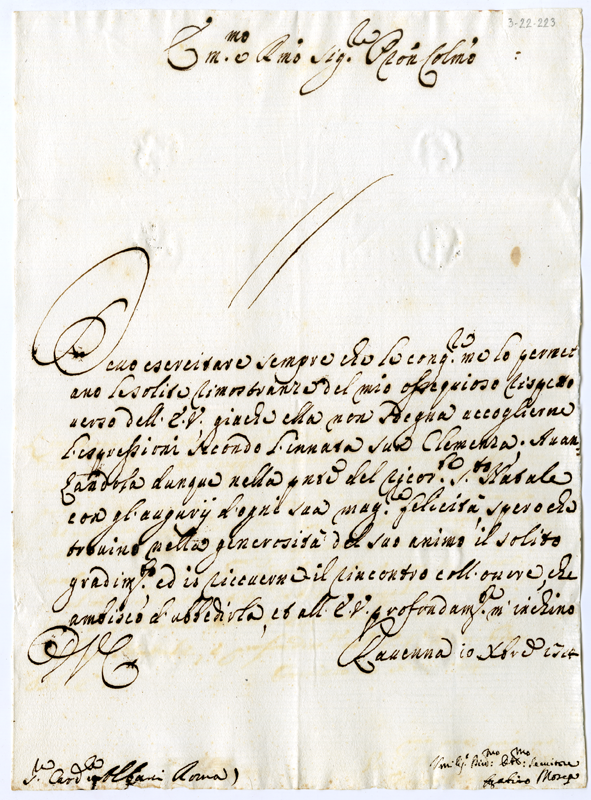 3-22-223
Em.mo e Rmo Sig.re Pron Colmo
Devo esercitare sempre che le cong.re me lo permet
ano le solite rimostranze del mio ossequioso rispetto
verso dell' E.V. giache ella non sdegna accoglierne
l'espressioni secondo l'innata sua Clemenza. Auan-
zandola dunque nella pnte del ricor.te S.to Natale
con gl'augurij d'ogni sua mag.re felicità, spero che
trovino nella generosità del suo animo il solito
gradim.to ed io riceverne il rincontro coll'onore, che
ambisco d'ubbidirla, et all' E.V. profondam.te m'inchino
Ravenna 10 Xbre 1714
S.re Card.le Albani Roma)
Vmiliss. Divo: Obb:mo Servitore
Mosca